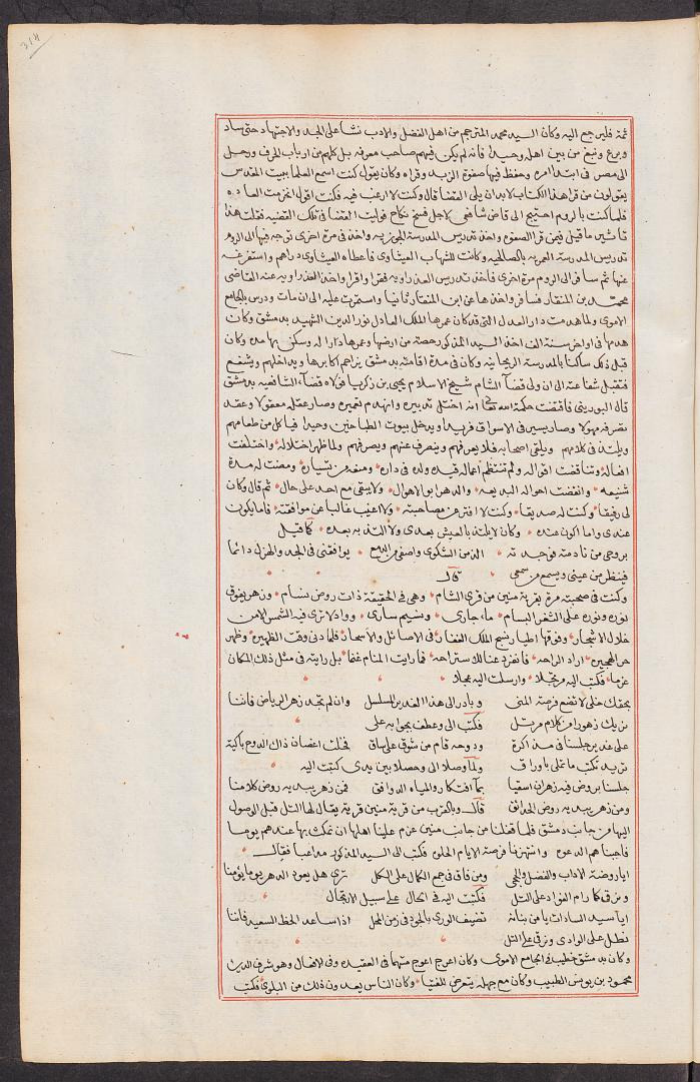 ٣١٨
ثمة فليرجع اليه وكان السيد محمد المترجم من اهل الفضل والادب نشا على الجد والاجتهاد حتى ساد
وبرع ونبغ من بين اهله وحيدا فانه لم يكن فيهم صاحب معرفه بل كلهم من ارباب الحرف ورحل
الى مصر في ابتدا امره وحفظ فيها صفوة الزبد وقراه وكان يقول كنت اسمع العلما ببيت المقدس
يقولون من قرا هذا الكتاب لا بد ان يلي القضا قال وكنت لا ارغب فيه فكنت اقول انخرمت العاده
فلما كنت بالروم احتيج الى قاض شافعي لاجل فسخ نكاح فوليت القضا في تلك القضيه فقلت هذا
تاثير ما قيل فيمن قرا الصفوه واخذ تدريس المدرسة الجوزيه واخذ في مرة اخرى توجه فيها الى الروم
تدريس المدرسة العمريه بالصالحيه وكانت للشهاب العيثاوي فاعطاه العيثاوي دراهم واستفرغه
عنها ثم سافر الى الروم مرة اخرى فاخذ تدريس العذراويه فقرا واقرا واخذ العذراويه عنه القاضي
محمد بن المنقار فسافر واخذها عن ابن المنقار ثانيا واستمرت عليه الى ان مات ودرس بالجامع
الاموي ولما هدمت دار العدل التي قد كان عمرها الملك العادل نور الدين الشهيد بدمشق وكان
هدمها في اواخر سنة الف اخذ السيد المذكور حصة من ارضها وعمرها دارا له وسكن بها مده وكان
قبل ذلك ساكنا بالمدرسة الريحانيه وكان في مدة اقامته بدمشق يزاحم اكابرها ويداخلهم ويشفع
فتقبل شفاعته الى ان ولى قضآ الشام شيخ الاسلام يحيى بن زكريا فولاه قضآء الشافعيه بدمشق
قال البوريني فاقتضت حكمة الله تعالى انه اختل تدبيره وانهدم تعميره وصار عقله معقولا وعقد
تصرفه محلولا وصار يسير في الاسواق فريدا ويدخل بيوت الطباخين وحيدا فياكل من طعامهم
ويلتذ في كلامهم ويلقى اصحابه فلا يعرفهم وينصرف عنهم ويصرفهم ولما ظهر اختلاله واختلفت
افعاله وتناقضت اقواله ولم تنتظم اعماله قيده ولده في داره ومنعه من تسياره ومضت له مدة
شنيعه وانقضت احواله البديعه والدهر ابو الاهوال ولا يبقى مع احد على حال ثم قال وكان
لي رفيقا وكنت له صديقا وكنت لا افتر عن مصاحبته ولا اغيب غالبا عن موافقته فاما يكون
عندي واما اكون عنده وكان لا يلتذ بالعيش بعدي ولا التذ به بعده كما قيل
بروحي من نادمته فوجدته الذ من الشكوى واصفى من الدمع يوافقني في الجد والهزل دائما
فينظر من عيني ويسمع من سمعي قال
وكنت في صحبته مرة بقرية منين من قرى الشام وهي في الحقيقة ذات روض بسام وزهر يفوق
نوره ونوره على الثغر البسام ماء جاري ونسيم ساري وواد لا ترى فيه الشمس الا من
خلال الاشجار وفوقها اطيار تسبح الملك الغفار في الاصائل والاسحار فلما دنى وقت الظهيره وظهر
حر الهجيره اراد الراحه فانفرد عنا للاستراحه فما رايت المنام غنما بل رايته في مثل ذلك المكان
غرما فكتبت اليه مرتجلا وارسلت اليه عجلا
بحقك خلي لا تضع فرصة المنى وبادر الى هذا الغدير المسلسل وان لم تجد زهر الرياض فاننا
نريك زهورا من كلام مرتل فكتب الى وعطف بجوابه على
على غدير جلسنا في مذاكرة ودوحه قام من شوق على ساق فخلت اغصان ذاك الدوح باكية
تريد تكتب ما نملي باوراق ولما وصلا الى وحصلا بين يدي كتبت اليه
جلسنا بروض فيه زهران اسقيا بمآ افتكار والمياه الدوافق فمن زهر يبديه روض كلامنا
ومن زهر يبديه روض الحدائق قال وبالقرب من قرية منين قرية يقال لها التل قبل الوصول
اليها من جانب دمشق فلما قفلنا من جانب منين عزم علينا اهلها ان نمكث بها عندهم يوما
فاجبنا هم الدعوه وانتهزنا فرصة الايام الحلوه فكتب الى السيد المذكور مداعبا فقال
ايا روضة الاداب والفضل والحجى ومن فاق في جمع الكمال على الكل ترى هل يعود الدهر يوما يؤمنا
ونرقى كما رام الفؤاد على التل فكتبت اليه في الحال على سبيل الارتجال
ايا سيد السادات يا من بنانه تضيف الورى بالجود في زمن المحل اذا ساعد الحظ السعيد فاننا
نطل على الوادي ونرقى على التل
وكان بدمشق خطيب في الجامع الاموي وكان اعوج متهما في العقيده وفي الافعال وهو شرف الدين
محمود بن يونس الطبيب وكان مع جهله يتعرض للفتيا وكان الناس يعدون ذلك من البلوى فكتب